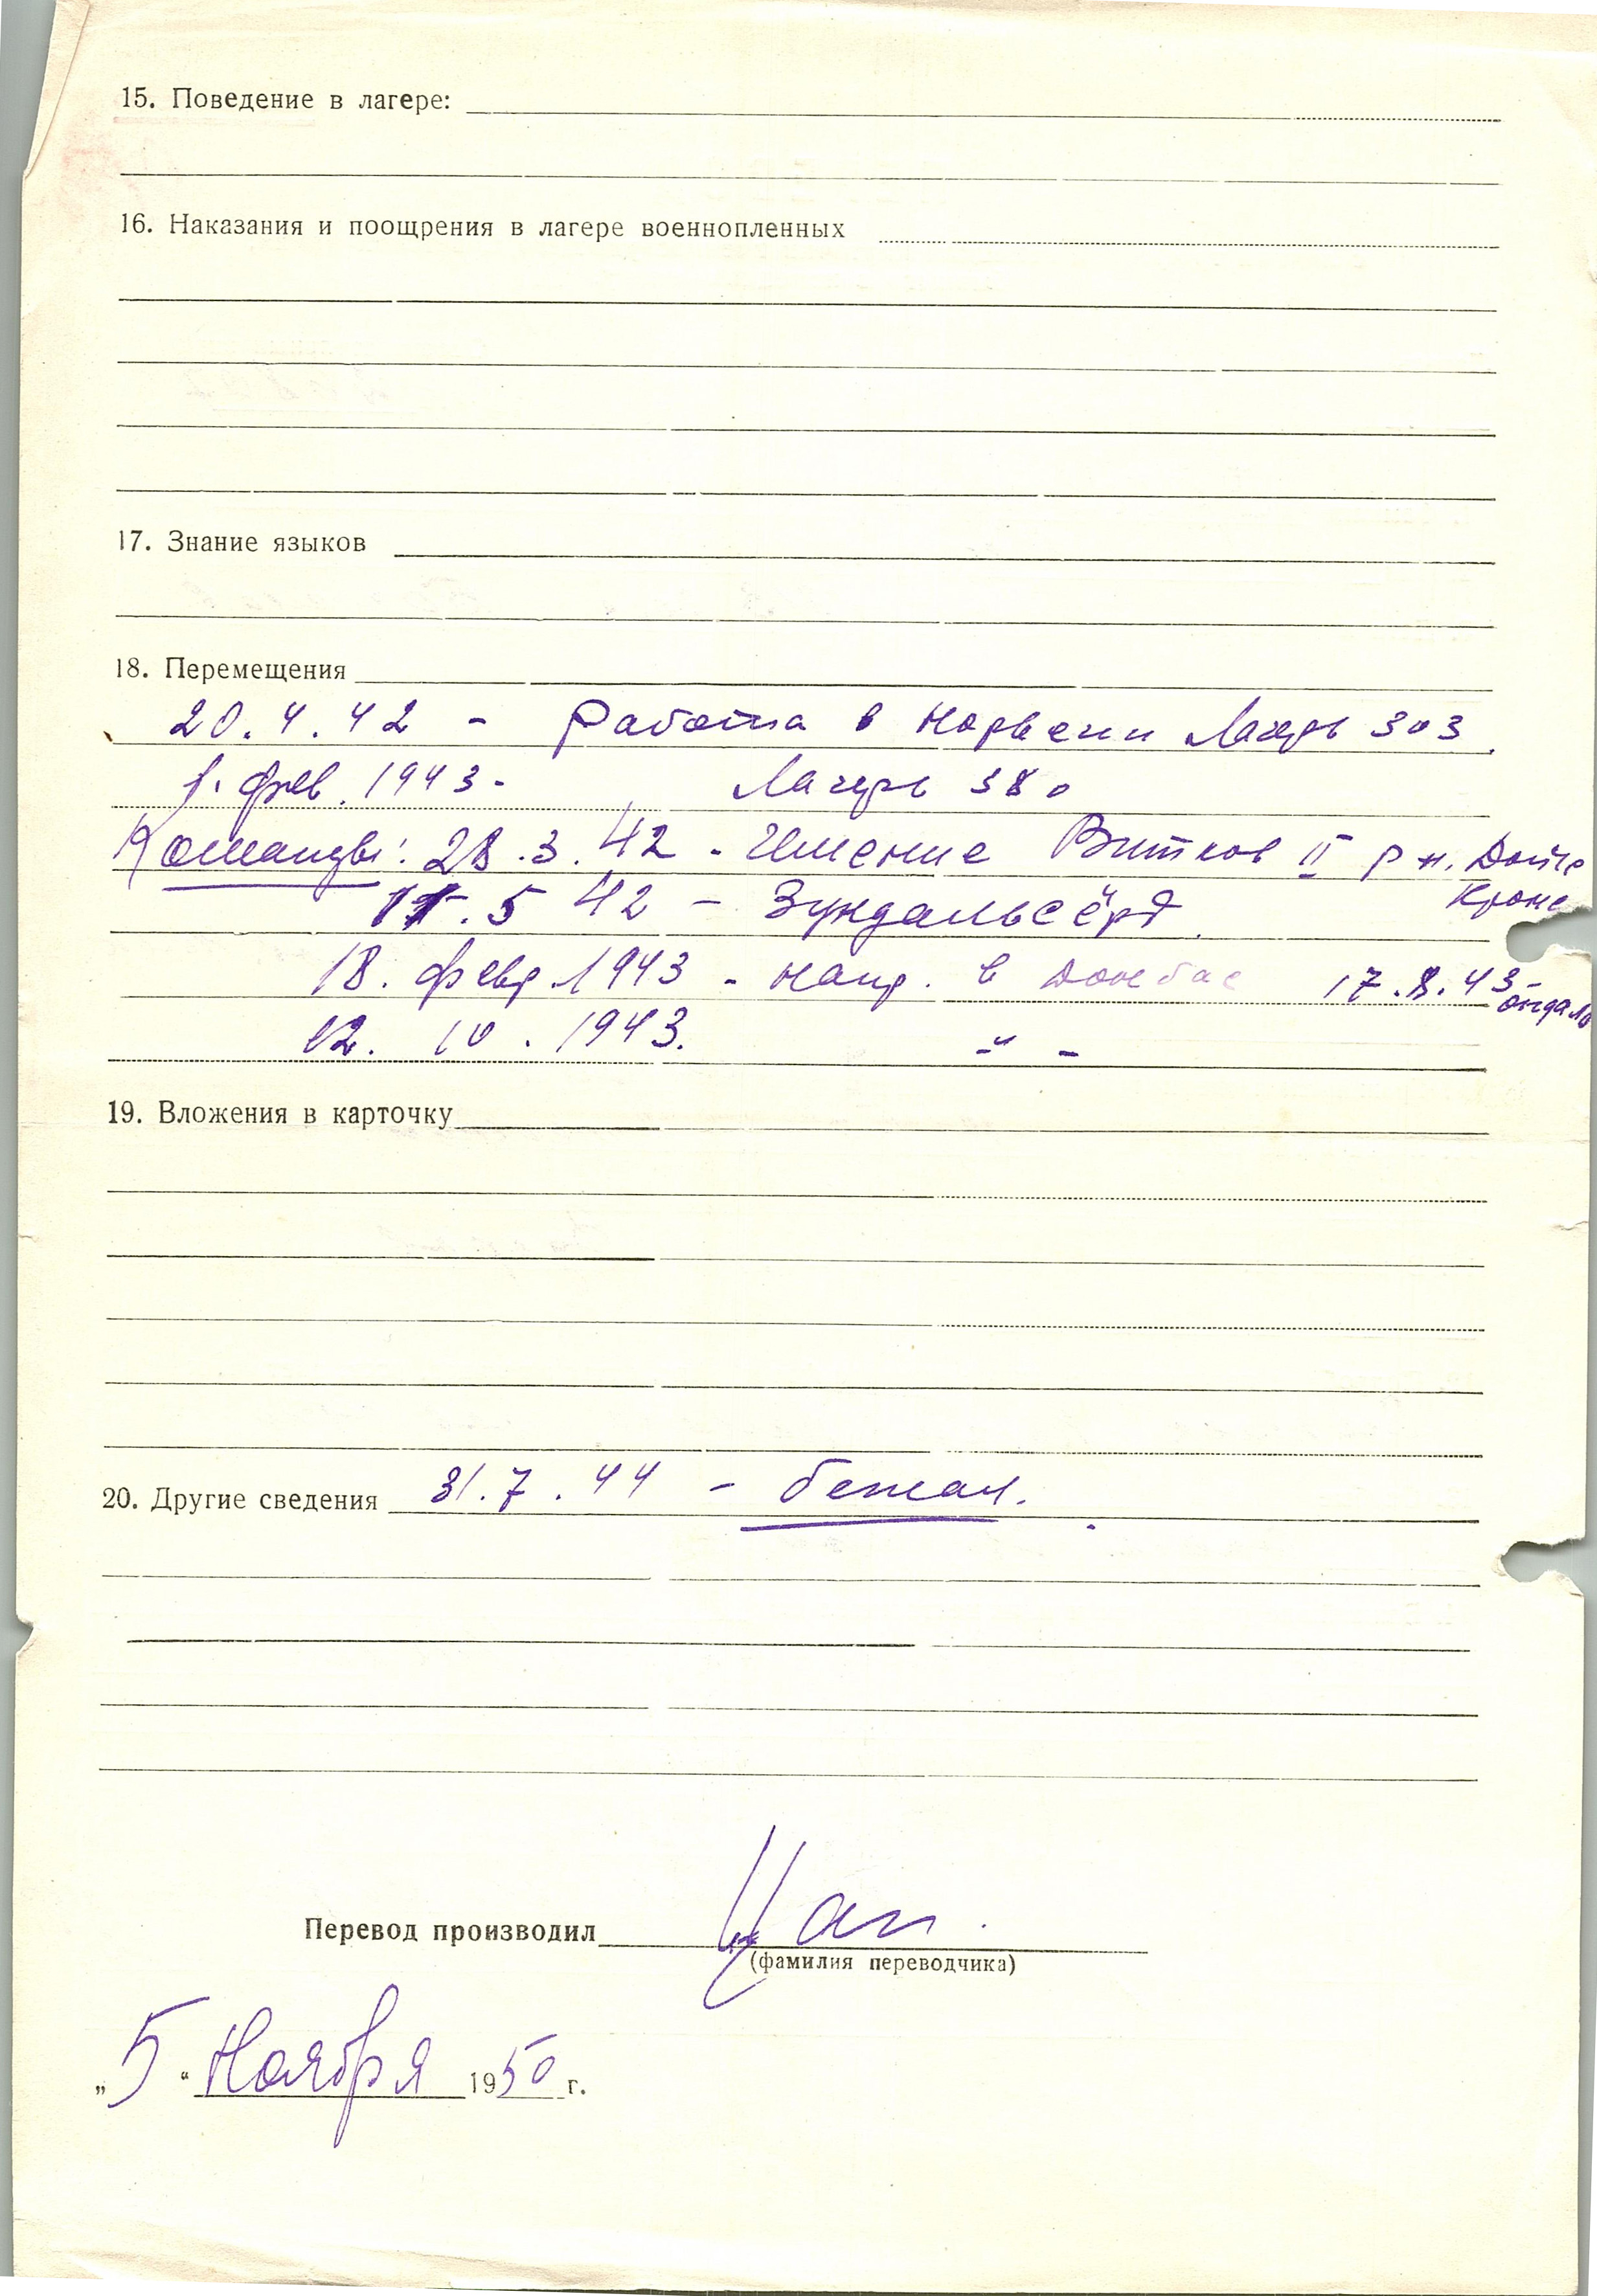 15. Поведение в лагере:
16. Наказания и поощрения в лагере военнопленных
17. Знание языков
18. Перемещения
20.4.42 - Работа в Норвегии Лагерь 303.
1. фев. 1943 - Лагерь 380
Команды: 28.3.42 - Имение Витков II р-н. Дойче
Кроне
11.5 42 - Зундальсёрд.
18. февр. 1943 - напр. в Домбас 17.8.43 -
12. 10. 1943. - " -
19. Вложения в карточку
20. Другие сведения 31.7.44 - бежал.
Перевод производил
(фамилия переводчика)
„5“ Ноября 1950 г.